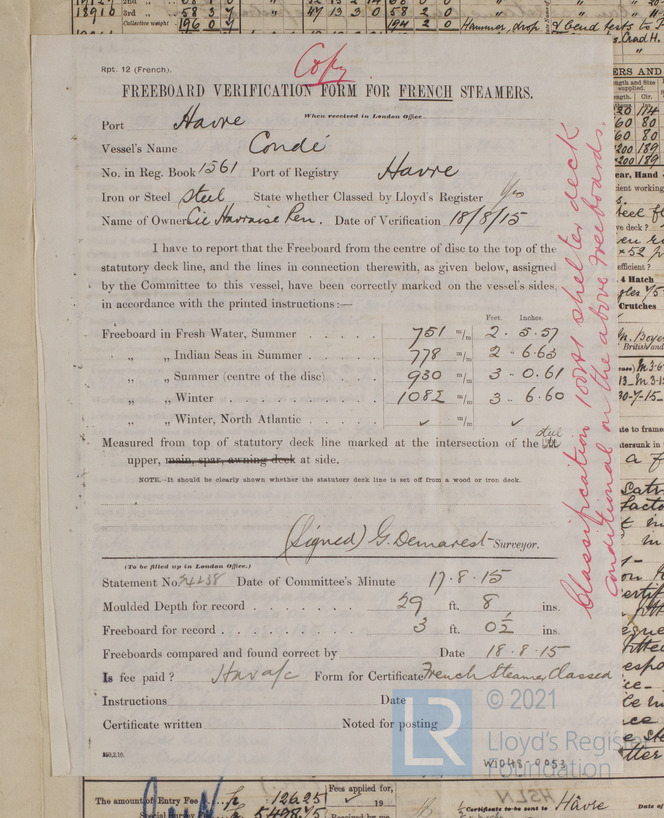 Copy
Rpt. 12 (French).
FREEBOARD VERIFICATION FORM FOR FRENCH STEAMERS.
When received in London Office
Port Havre
Vessel's Name Condé
No. in Reg. Book 1561 Port of Registry Havre
Iron or Steel steel State whether Classed by Lloyd's Register Yes
Name of Owner Cie Havraise Pen. Date of Verification 18/8/15
I have to report that the Freeboard from the centre of disc to the top of the
statutory deck line, and the lines in connection therewith, as given below, assigned
by the Committee to this vessel, have been correctly marked on the vessel's sides,
in accordance with the printed instructions:—
Feet. Inches.
Freeboard in Fresh Water, Summer . . . . . 751 m/m 2 . 5.57
„ „ Indian Seas in Summer . . . . 778 m/m 2 . 6.63
„ „ Summer (centre of the disc) . . . 930 m/m 3 . 0.61
„ „ Winter . . . . . . . . . 1082 m/m 3 . 6.60
„ „ Winter, North Atlantic . . . . . ✓ m/m ✓
Measured from top of statutory deck line marked at the intersection of the steel
upper, main, spar, awning deck at side.
NOTE.—It should be clearly shown whether the statutory deck line is set off from a wood or iron deck.
(Signed) G. Demarest Surveyor.
(To be filled up in London Office.)
Statement No. 34238 Date of Committee's Minute 17.8.15
Moulded Depth for record . . . . . . . 29 ft. 8 ins.
Freeboard for record . . . . . . . . 3 ft. 0½ ins.
Freeboards compared and found correct by Date 18.8.15
Is fee paid ? Hav a/c Form for Certificate French Steamer, Classed
Instructions Date
Certificate written Noted for posting
350,2,10.
Classification 100A1 shelter deck
conditional on the above freeboards.
© 2021
LR
Lloyd's Register
Foundation
W1048-0053
The amount of Entry Fee
Fees applied for,
19
Certificate to be sent to Hâvre
Collective weight
Hammer, drop & bend tests to